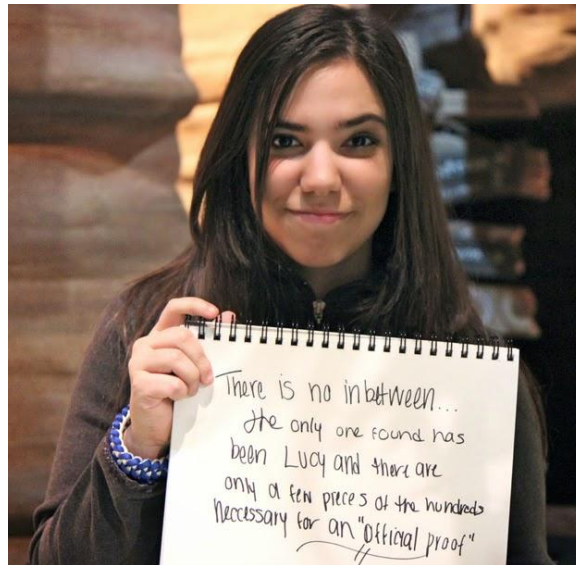 There is no inbetween...
the only one found has
been Lucy and there are
only a few pieces of the hundreds
neccessary for an "official proof"